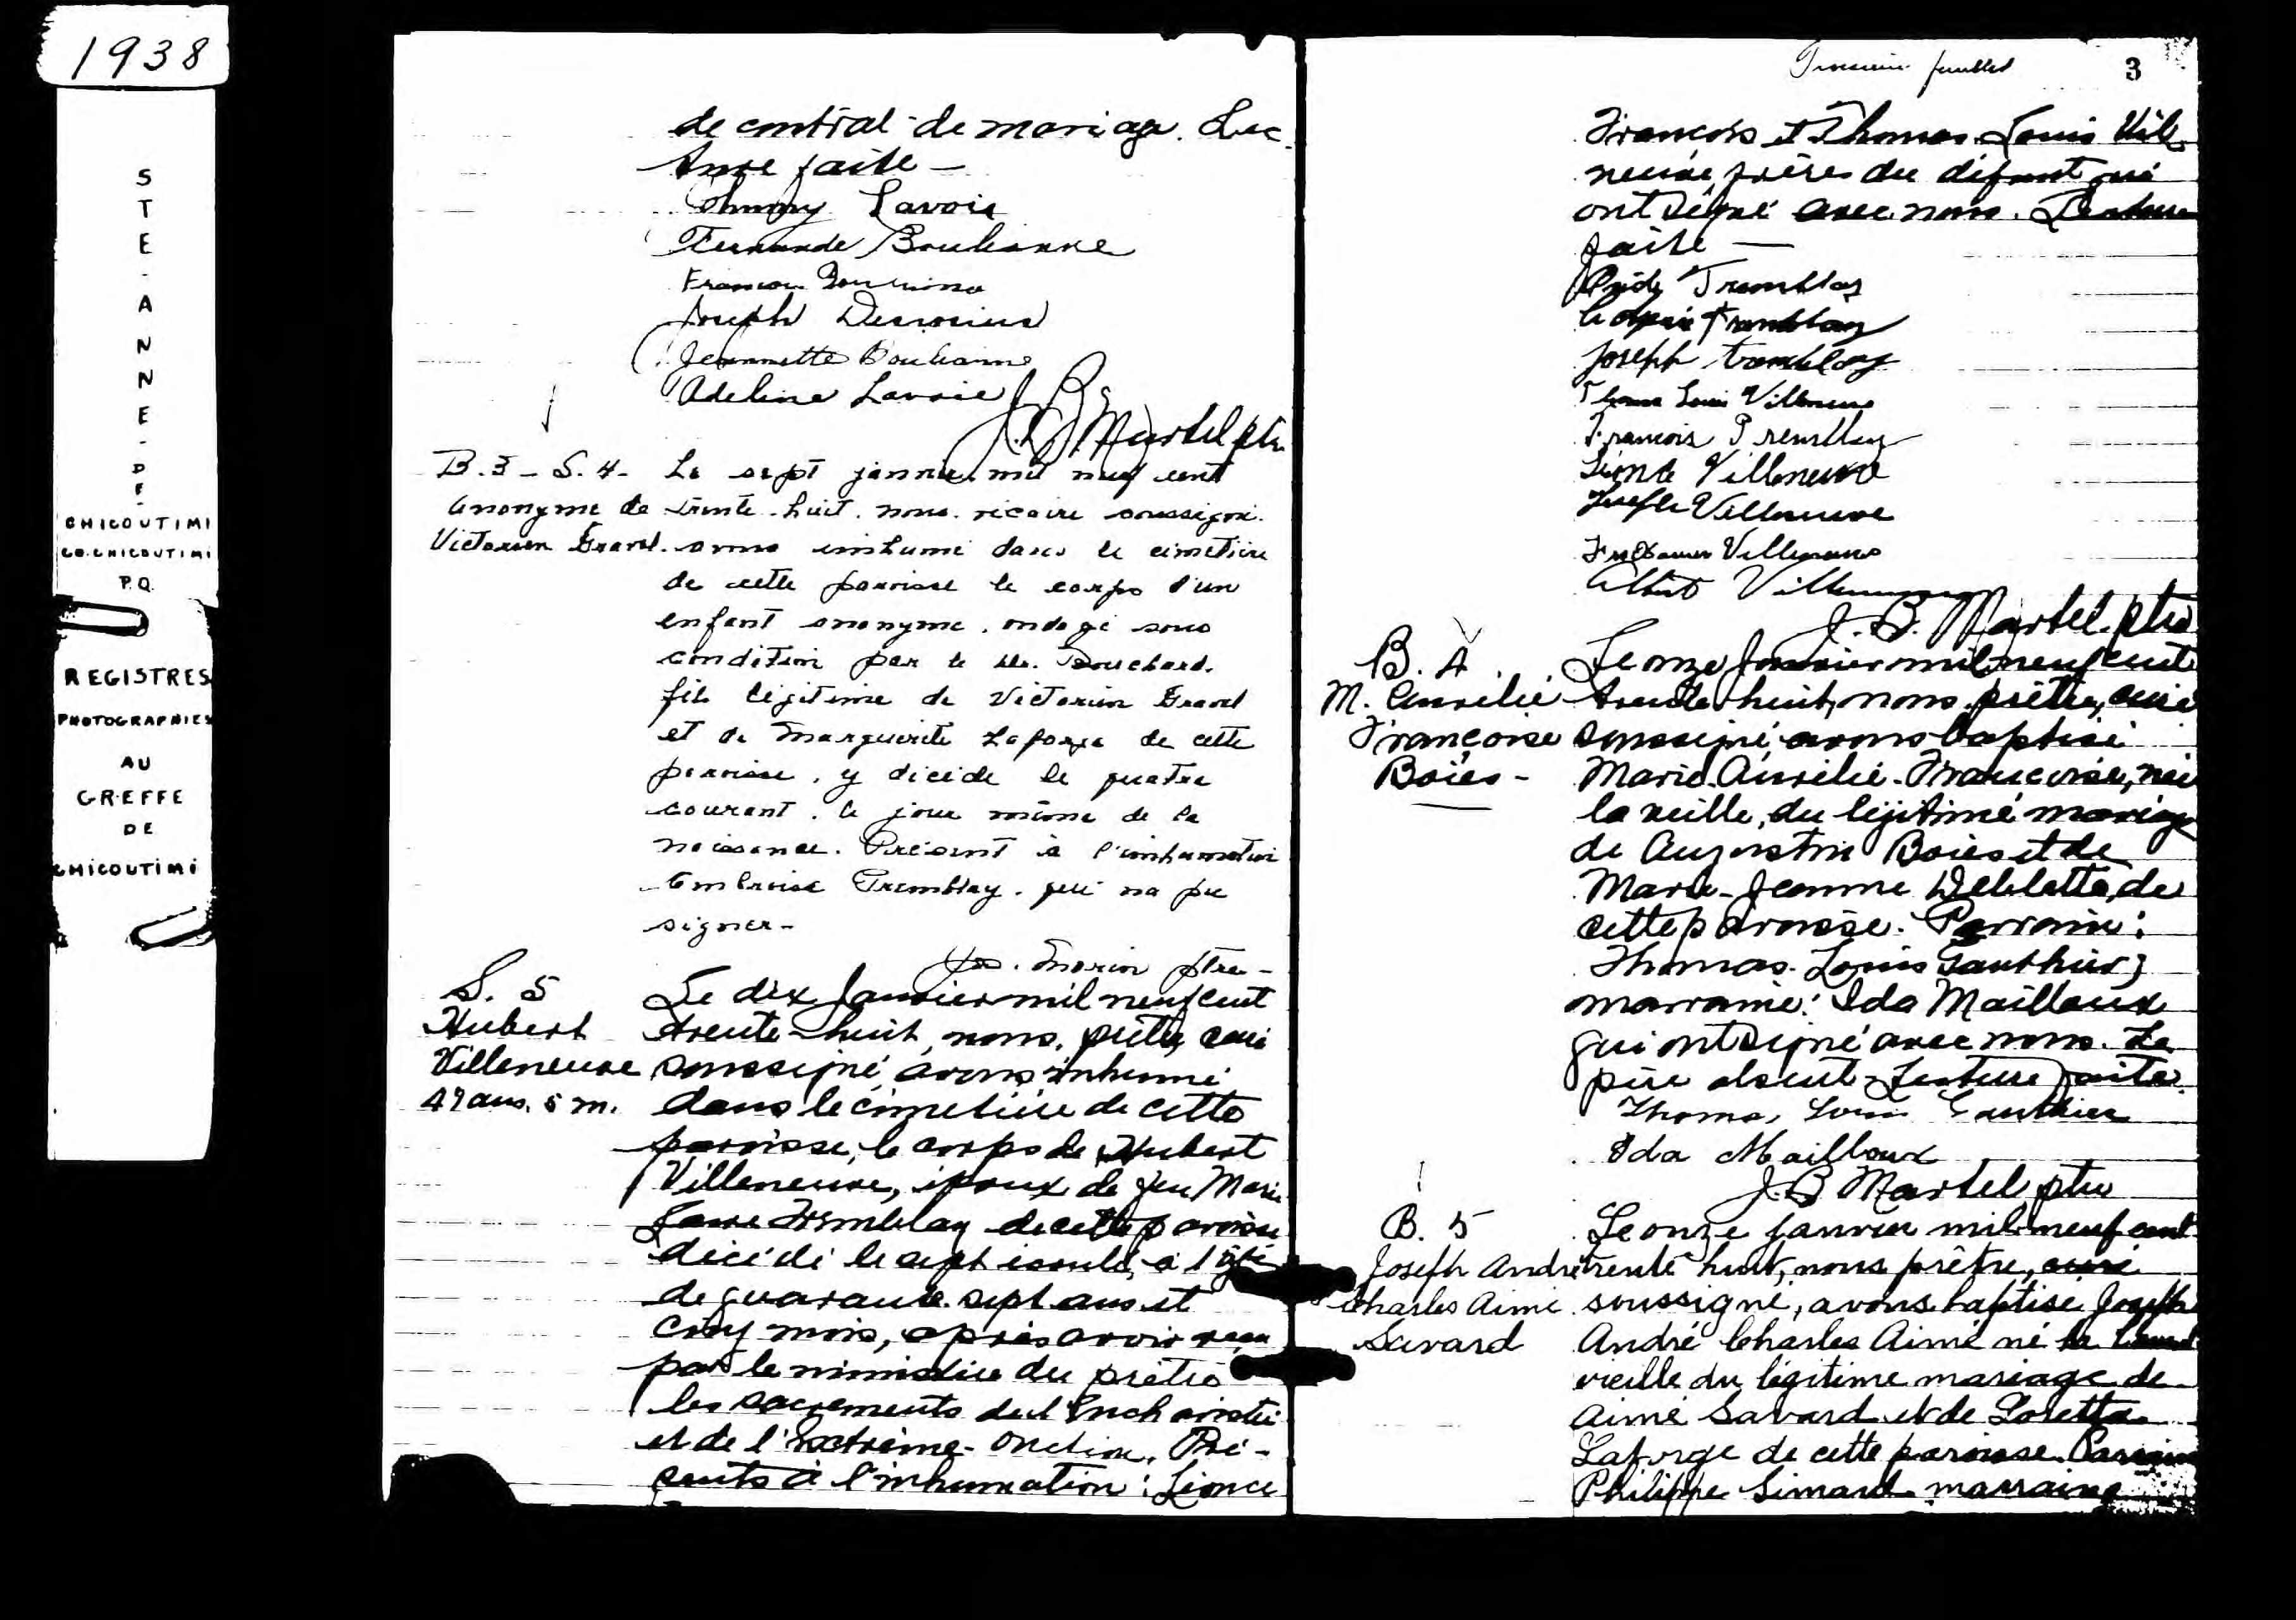 1938
STE-ANNE-DE-
CHICOUTIMI
CO. CHICOUTIMI
P.Q.
REGISTRES
PHOTOGRAPHIES
AU
GREFFE
DE
CHICOUTIMI
de contrat de mariage. Lec
ture faite —
Johnny Lavoie
Fernande Boulianne
Joseph Desrosiers
Jeannette Boulianne
Adeline Lavoie
J. B. Martel ptr
B. 3 - S. 4 -
Anonyme de
Victorien Gravel.
Le sept janvier mil neuf cent
trente-huit, nous vicaire soussigné
avons inhumé dans le cimetière
de cette paroisse le corps d'un
enfant anonyme, ondoyé sous
condition par le Dr. Bouchard,
fils légitime de Victorien Gravel
et de Marguerite Laforge de cette
paroisse, y décédé le quatre
courant, le jour même de la
naissance. Présent à l'inhumation
Ambroise Tremblay, qui n'a pu
signer -
Morin ptre -
S. 5
Hubert
Villeneuve
47 ans. 5 m.
Le dix Janvier mil neuf cent
trente-huit, nous, prêtre, curé
soussigné, avons inhumé
dans le cimetière de cette
paroisse, le corps de Hubert
Villeneuve, époux de feu Marie
Tremblay de cette paroisse
décédé le sept écoulé, à l'âge
de quarante-sept ans et
cinq mois, après avoir reçu
par le ministère du prêtre
les sacrements de l'Eucharistie
et de l'Extrême-Onction. Pré-
sents à l'inhumation : Léonce
Troisième feuillet
3
François et Thomas-Louis Vil
neuve, frères du défunt qui
ont signé avec nous. Lecture
faite —
Tremblay
Tremblay
Joseph Tremblay
Thomas Louis Villeneuve
François Tremblay
Léonce Villeneuve
Joseph Villeneuve
Villeneuve
Albert Villeneuve
J. B. Martel. ptre
B. 4
M. Aurélie
Françoise
Boies -
Le onze Janvier mil neuf cent
trente-huit, nous, prêtre, curé
soussigné, avons baptisé
Marie-Aurélie-Françoise, née
la veille, du légitime mariage
de Augustin Boies et de
Marie-Jeanne de
cette paroisse. Parrain :
Thomas-Louis Gauthier ;
marraine : Ida Mailloux
qui ont signé avec nous. Le
père absent - Lecture faite.
Thomas Louis Gauthier
Ida Mailloux
J. B Martel ptre
B. 5
Joseph André
Charles Aimé
Savard
Le onze janvier mil neuf cent
trente huit, nous prêtre, curé
soussigné, avons baptisé Joseph
André Charles Aimé né la
vieille du légitime mariage de
Aimé Savard et de Loretta
Laforge de cette paroisse. Parrain
Philippe Simard marraine